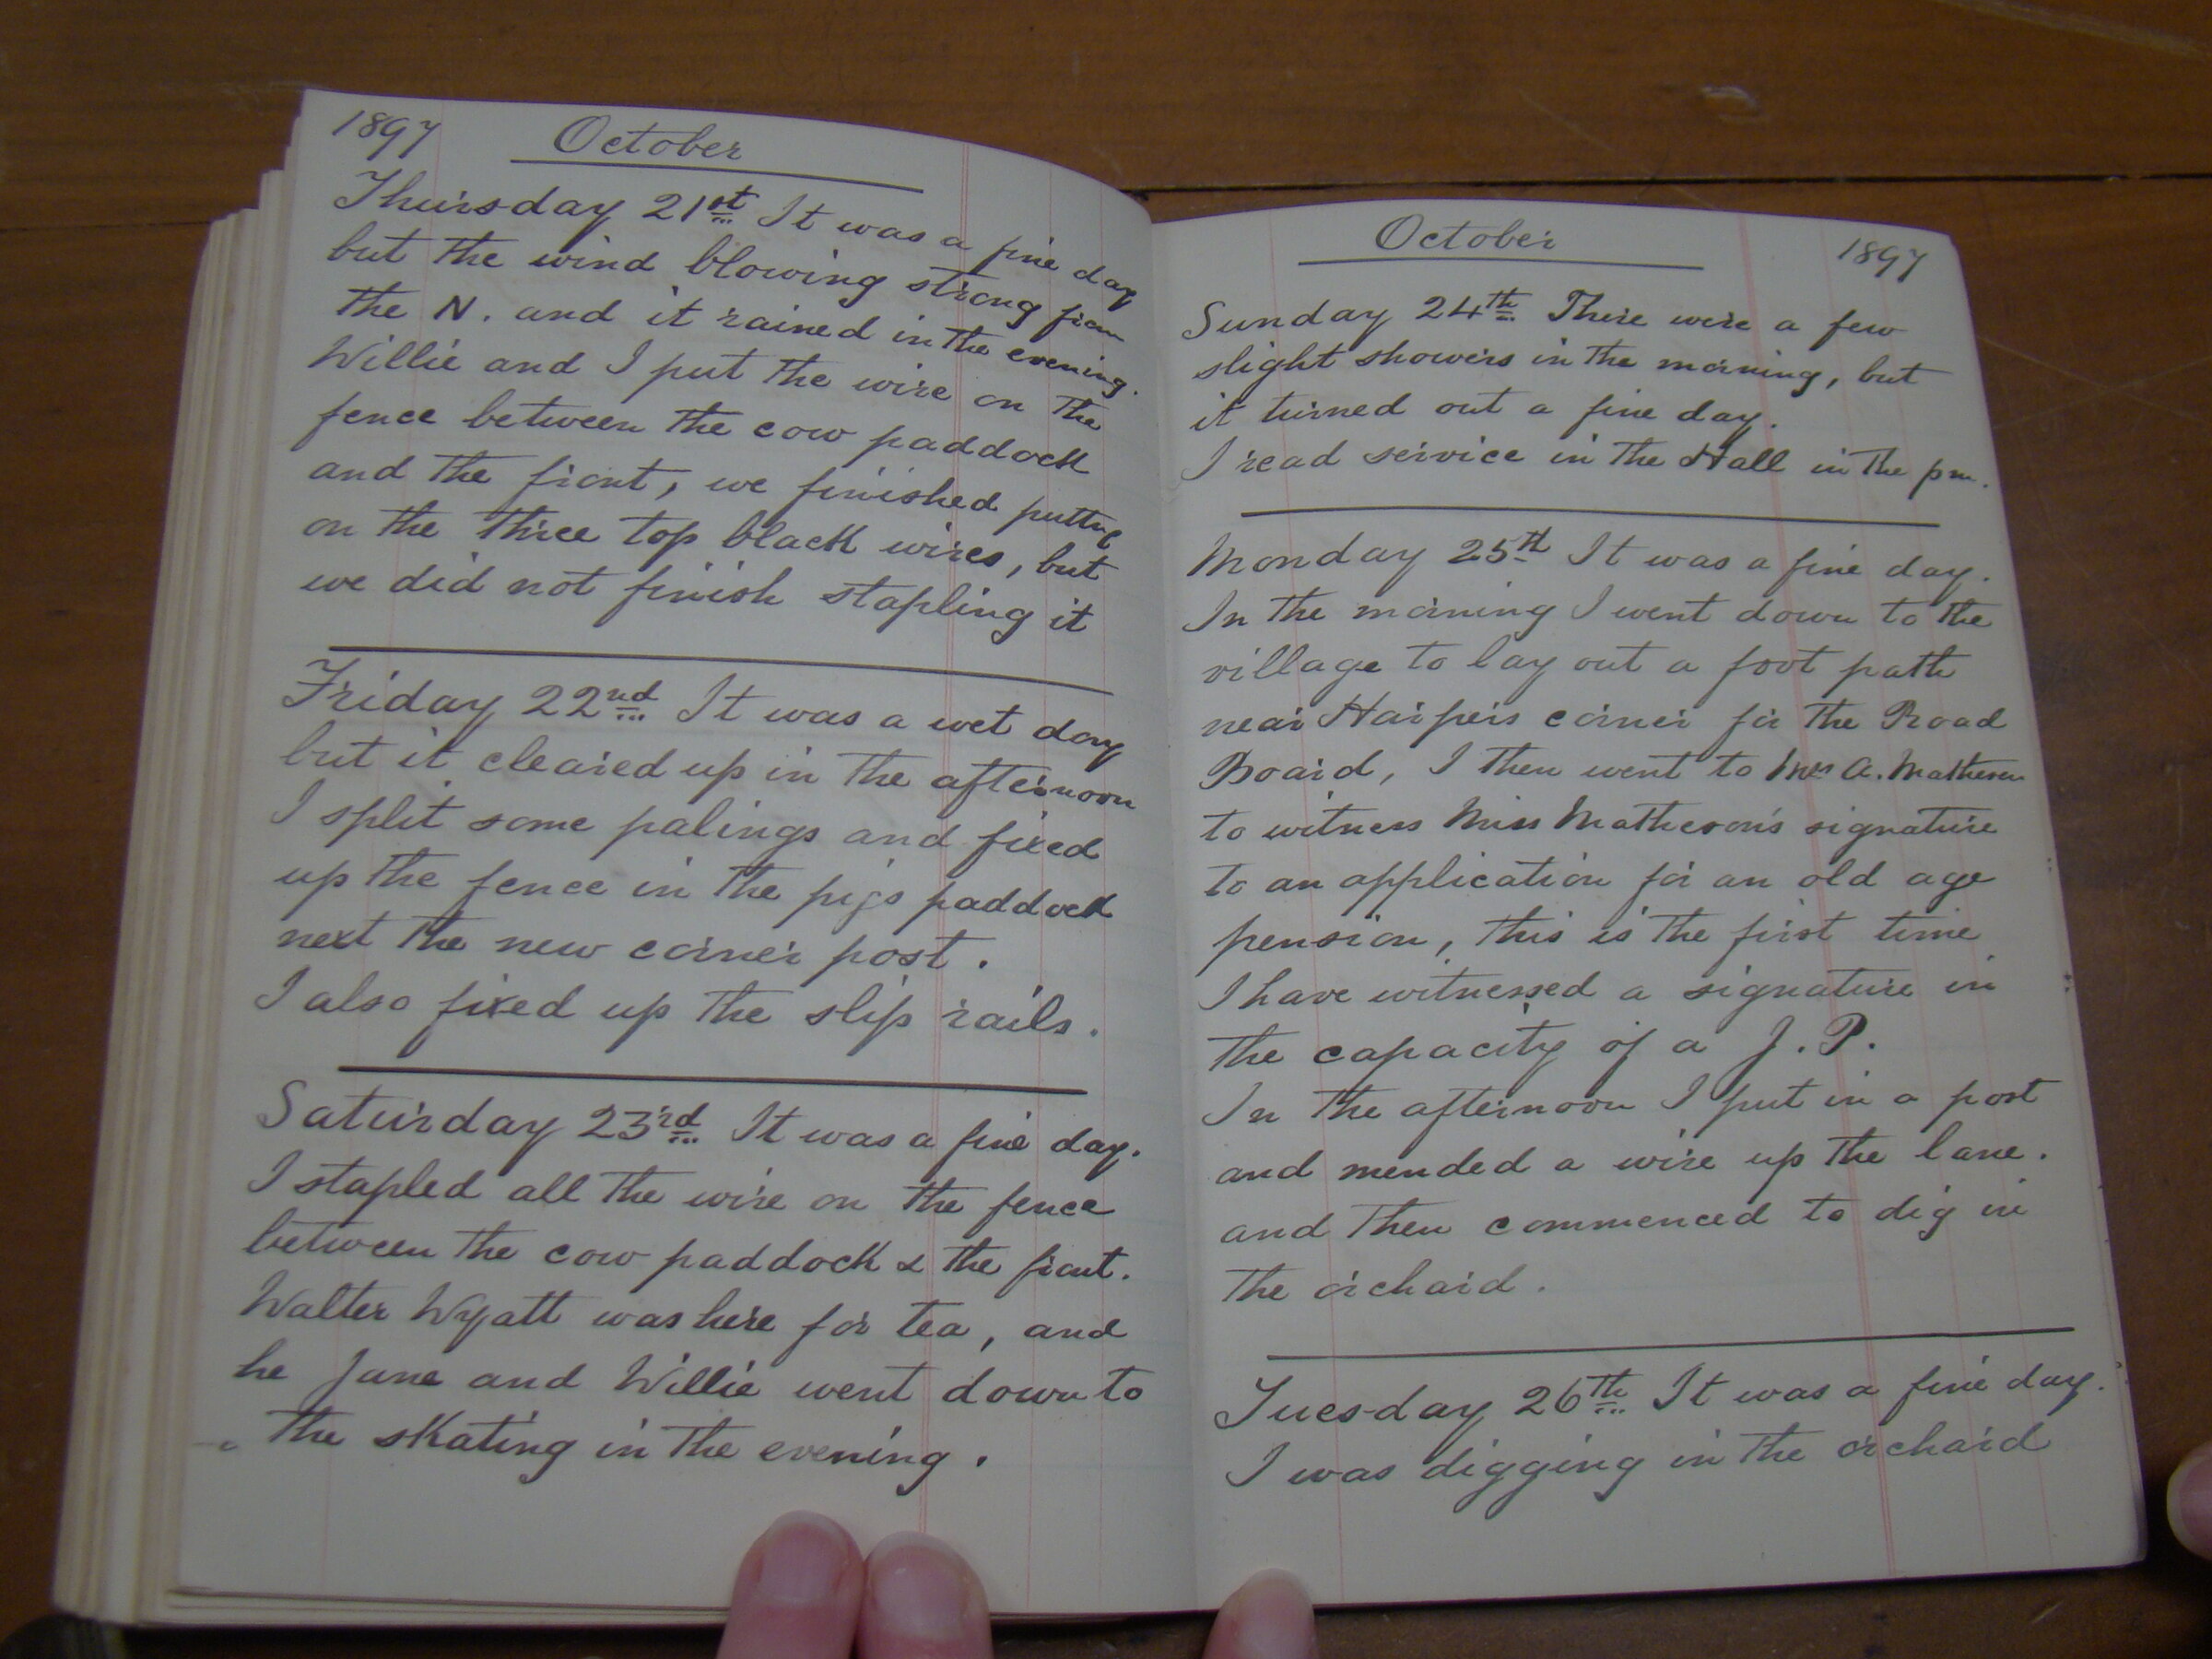 1897 October
Thursday 21st It was a fine day
but the wind blowing strong from
the N. and it rained in the evening.
Willie and I put the wire on the
fence between the cow paddock
and the front, we finished putting
on the three top black wires, but
we did not finish stapling it
Friday 22nd It was a wet day
but it cleared up in the afternoon
I split some palings and fixed
up the fence in the pigs paddock
next the new corner post.
I also fixed up the slip rails.
Saturday 23rd It was a fine day.
I stapled all the wire on the fence
between the cow paddock & the front.
Walter Wyatt was here for tea, and
he Jane and Willie went down to
the skating in the evening.
October 1897
Sunday 24th There were a few
slight showers in the morning, but
it turned out a fine day.
I read service in the Hall in the pm.
Monday 25th It was a fine day.
In the morning I went down to the
village to lay out a foot path
near Harpers corner for the Road
Board, I then went to Mrs A. Matheson
to witness Miss Matheson's signature
to an application for an old age
pension, this is the first time
I have witnessed a signature in
the capacity of a J. P.
In the afternoon I put in a post
and mended a wire up the lane.
and then commenced to dig in
the orchard.
Tuesday 26th It was a fine day.
I was digging in the orchard